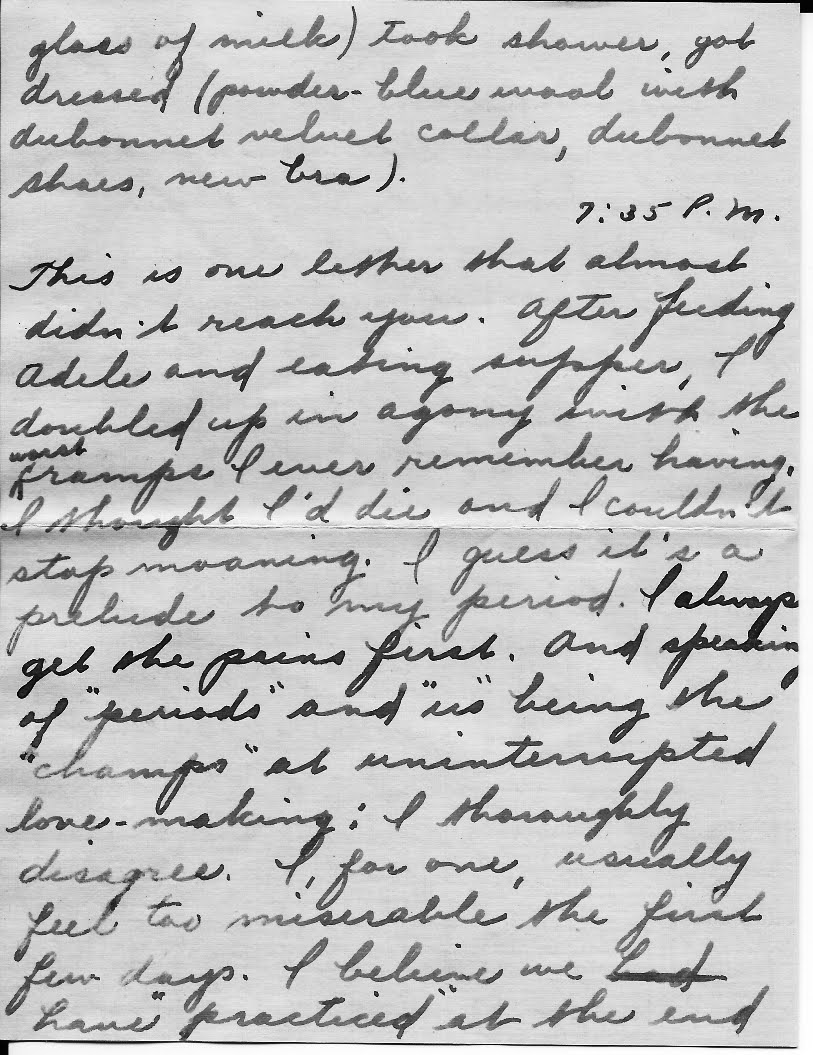 glass of milk) took shower, got
dressed (powder-blue wool with
dubonnet velvet collar, dubonnet
shoes, new bra).
7:35 P.M.
This is one letter that almost
didn't reach you. After feeding
Adele and eating supper, I
doubled up in agony with the
worst
cramps I ever remember having.
I thought I'd die and I couldn't
stop moaning. I guess it's a
prelude to my period. I always
get the pains first. And speaking
of "periods" and "us" being the
"champs" at uninterrupted
love-making; I thoroughly
disagree. I, for one, usually
feel too miserable the first
few days. I believe we had
have "practiced" at the end